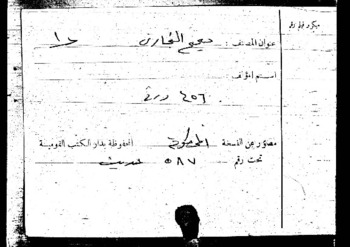 ميكروفيلم رقم
عنوان المصنف : صحيح البخاري جـ ١
اسم المؤلف :
٤٥٦ ورقة
مصور عن النسخة المحفوظة بدار الكتب القومية
تحت رقم ٥٨٧ حديث